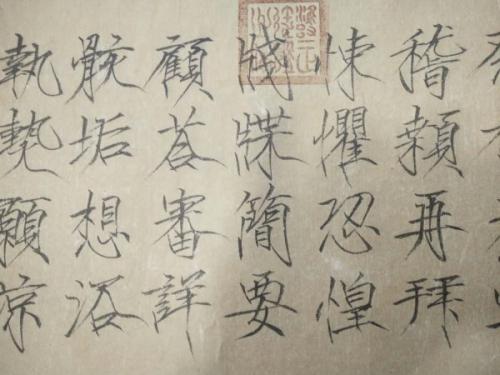 稽顙再拜
悚懼恐惶
牋牒簡要
顧荅審詳
骸垢想浴
執熱願涼